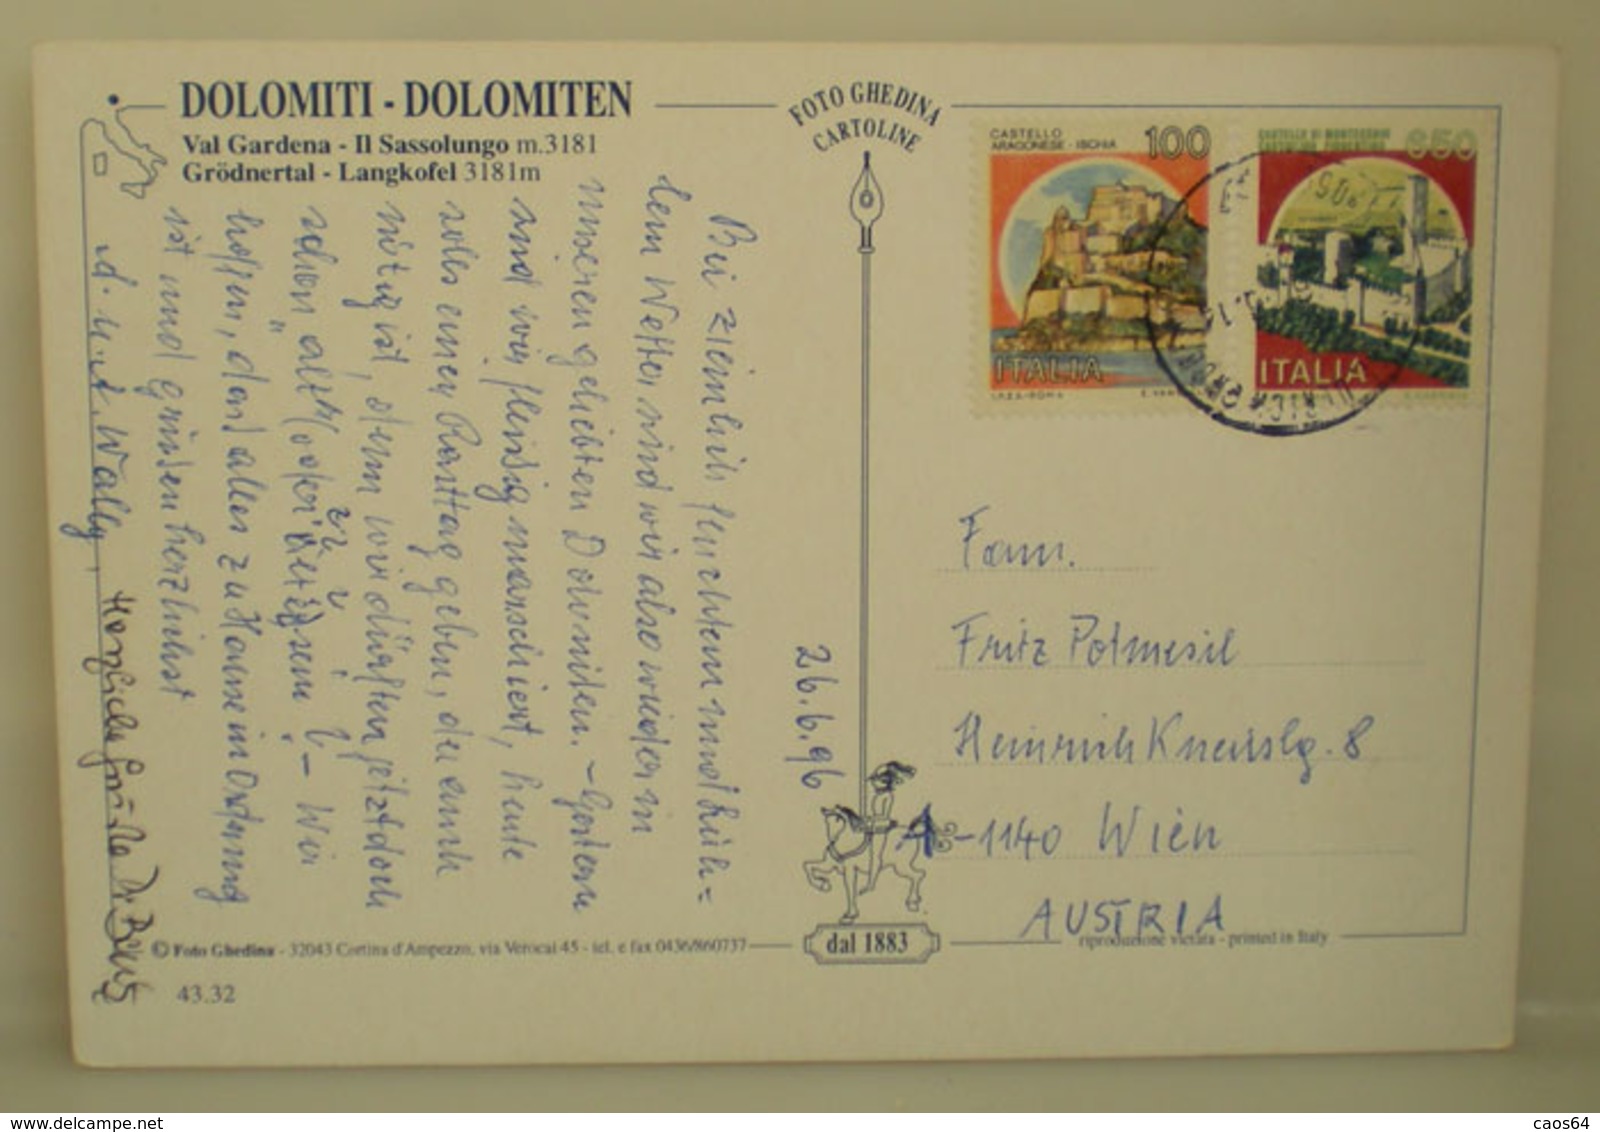 DOLOMITI - DOLOMITEN
Val Gardena - Il Sassolungo m.3181
Grödnertal - Langkofel 3181m
FOTO GHEDINA
CARTOLINE
CASTELLO
ARAGONESE - ISCHIA
100
ITALIA
I.P.Z.S. - ROMA
CASTELLO DI MONTECCHIO
CASTIGLION FIORENTINO
650
ITALIA
26.6.96
Bei ziemlich feuchtem und küh=
lem Wetter sind wir also wieder in
unseren geliebten Dolomiten. - Gestern
sind wir fleißig marschiert, heute
soll es einen Rasttag geben, der auch
nötig ist, denn wir dürften jetzt doch
schon "alt" sein! - Wir
hoffen, daß alles zu Hause in Ordnung
ist und grüßen herzlichst
Wally,
Herzliche Grüße
Fam.
Fritz Potmesil
Heinrich Kneislg. 8
A-1140 Wien
AUSTRIA
© Foto Ghedina - 32043 Cortina d'Ampezzo, via Verocai 45 - tel. e fax 0436/860737
dal 1883
riproduzione vietata - printed in Italy
43.32
www.delcampe.net
caos64